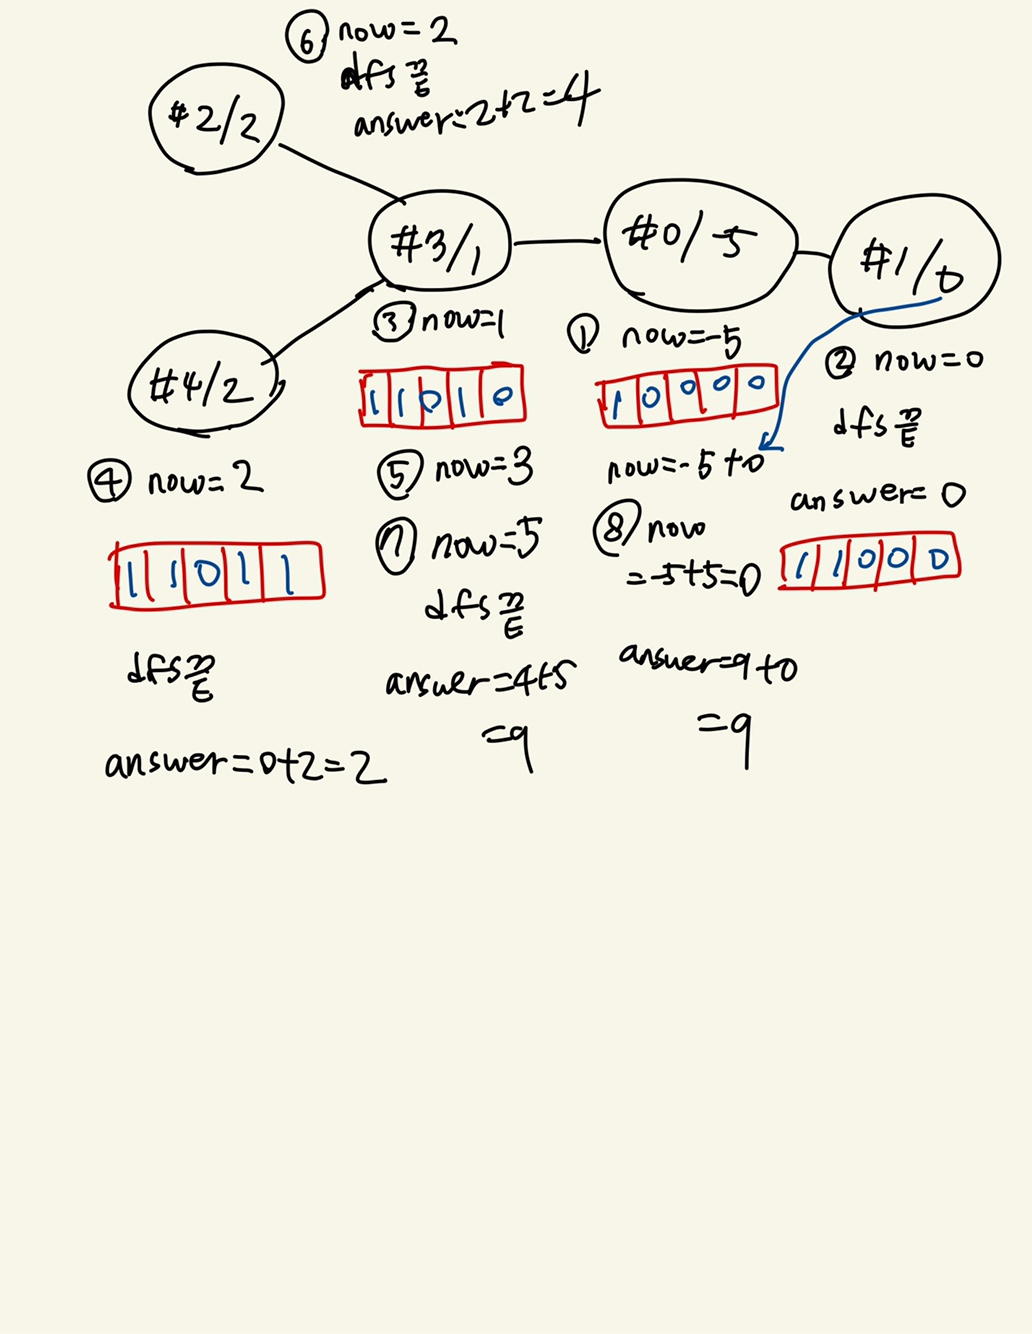 ⑥ now=2
dfs 끝
answer=2+2=4
#2/2
#3/1
#0/-5
#1/0
#4/2
③ now=1
1 1 0 1 0
① now=-5
1 0 0 0 0
now=-5+0
② now=0
dfs 끝
answer=0
1 1 0 0 0
④ now=2
1 1 0 1 1
dfs 끝
answer=0+2=2
⑤ now=3
⑦ now=5
dfs 끝
answer=4+5
=9
⑧ now
=-5+5=0
answer=9+0
=9